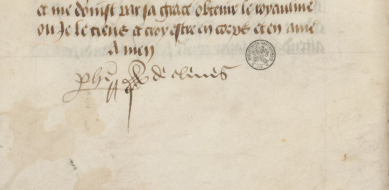 et me doinst par sa grace obtenir le royaulme
ou Je le tiens et croy estre en corps et en ame
Amen
phē de cleues